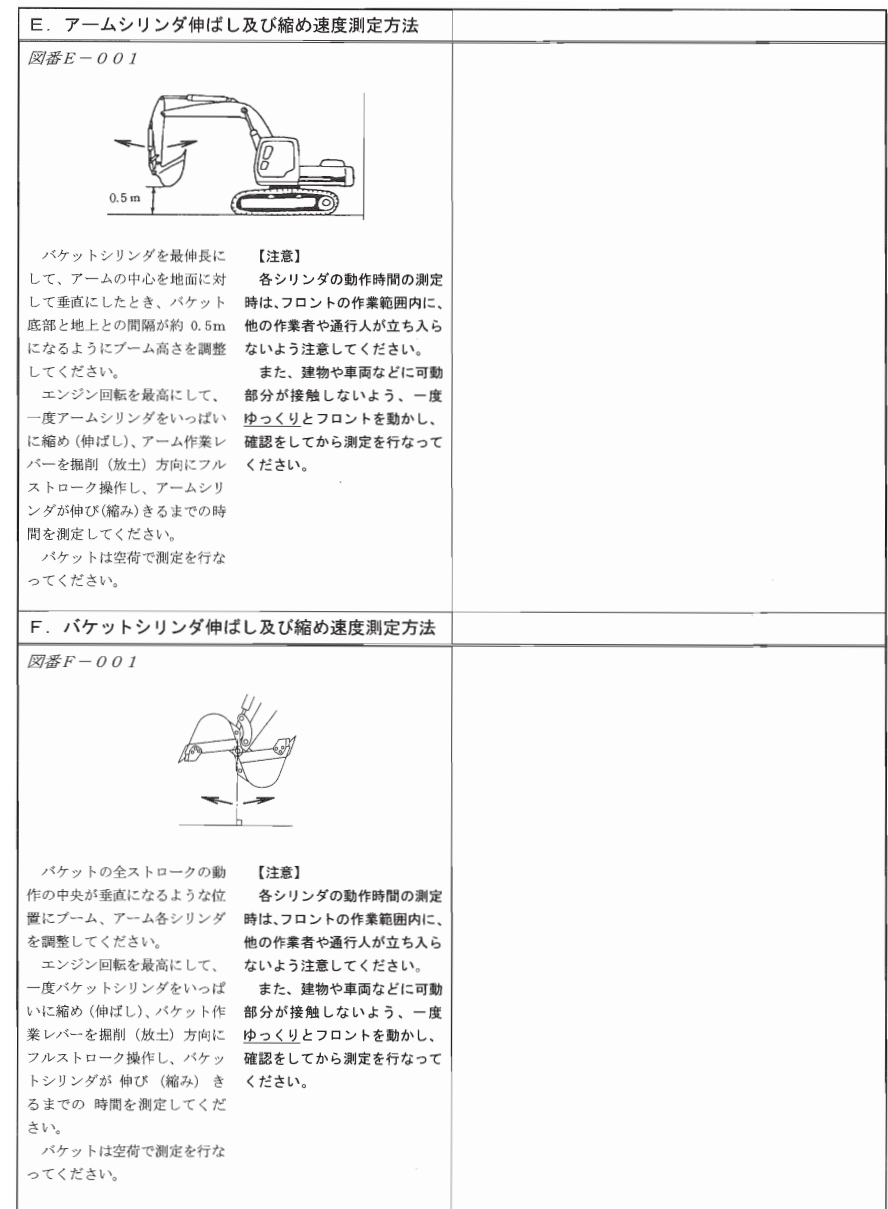 E．アームシリンダ伸ばし及び縮め速度測定方法
図番E－001
0.5 m
バケットシリンダを最伸長に
して、アームの中心を地面に対
して垂直にしたとき、バケット
底部と地上との間隔が約 0.5m
になるようにブーム高さを調整
してください。
エンジン回転を最高にして、
一度アームシリンダをいっぱい
に縮め（伸ばし）、アーム作業レ
バーを掘削（放土）方向にフル
ストローク操作し、アームシリ
ンダが伸び（縮み）きるまでの時
間を測定してください。
バケットは空荷で測定を行な
ってください。
【注意】
各シリンダの動作時間の測定
時は、フロントの作業範囲内に、
他の作業者や通行人が立ち入ら
ないよう注意してください。
また、建物や車両などに可動
部分が接触しないよう、一度
ゆっくりとフロントを動かし、
確認をしてから測定を行なって
ください。
F．バケットシリンダ伸ばし及び縮め速度測定方法
図番F－001
バケットの全ストロークの動
作の中央が垂直になるような位
置にブーム、アーム各シリンダ
を調整してください。
エンジン回転を最高にして、
一度バケットシリンダをいっぱ
いに縮め（伸ばし）、バケット作
業レバーを掘削（放土）方向に
フルストローク操作し、バケッ
トシリンダが 伸び （縮み） き
るまでの 時間を測定してくだ
さい。
バケットは空荷で測定を行な
ってください。
【注意】
各シリンダの動作時間の測定
時は、フロントの作業範囲内に、
他の作業者や通行人が立ち入ら
ないよう注意してください。
また、建物や車両などに可動
部分が接触しないよう、一度
ゆっくりとフロントを動かし、
確認をしてから測定を行なって
ください。